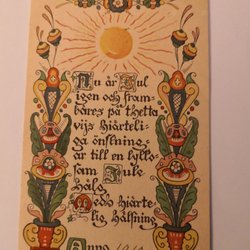 Nu är Jul
igen och fram-
bäres på thetta
vijs hiärteli-
ga önskning-
ar till en lyllo-
sam Jule-
Hälg
Medh hiärte-
lig hälsning
Anno